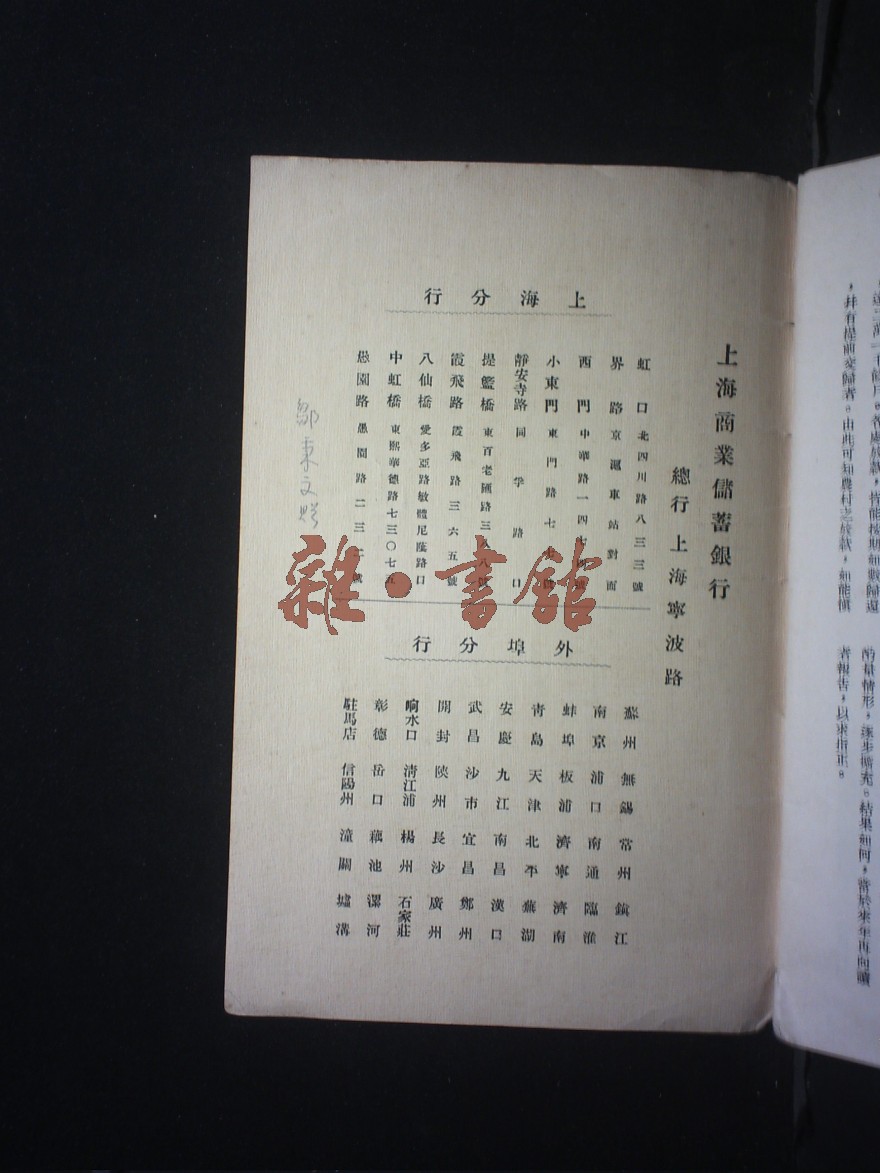 ，并有提前交歸者。由此可知農村之放款，如能愼
酌量情形，逐步擴充。結果如何，當於來年再向讀
者報告，以求指正。
上海商業儲蓄銀行
總行 上海寧波路
上海分行
虹口 北四川路八三三號
界路 京滬車站對面
西門 中華路一四七四號
小東門 東門路七七號
靜安寺路 同孚路口
提籃橋 東百老匯路三八八號
霞飛路 霞飛路三六五號
八仙橋 愛多亞路敏體尼蔭路口
中虹橋 東熙華德路七三〇七五
愚園路 愚園路二三二號
外埠分行
蘇州 無錫 常州 鎮江
南京 浦口 南通 臨淮
蚌埠 板浦 濟寧 濟南
青島 天津 北平 蕪湖
安慶 九江 南昌 漢口
武昌 沙市 宜昌 鄭州
開封 陝州 長沙 廣州
响水口 清江浦 楊州 石家莊
彰德 岳口 藕池 漯河
駐馬店 信陽州 潼關 墟溝
鄒秉文贈
雜·書館